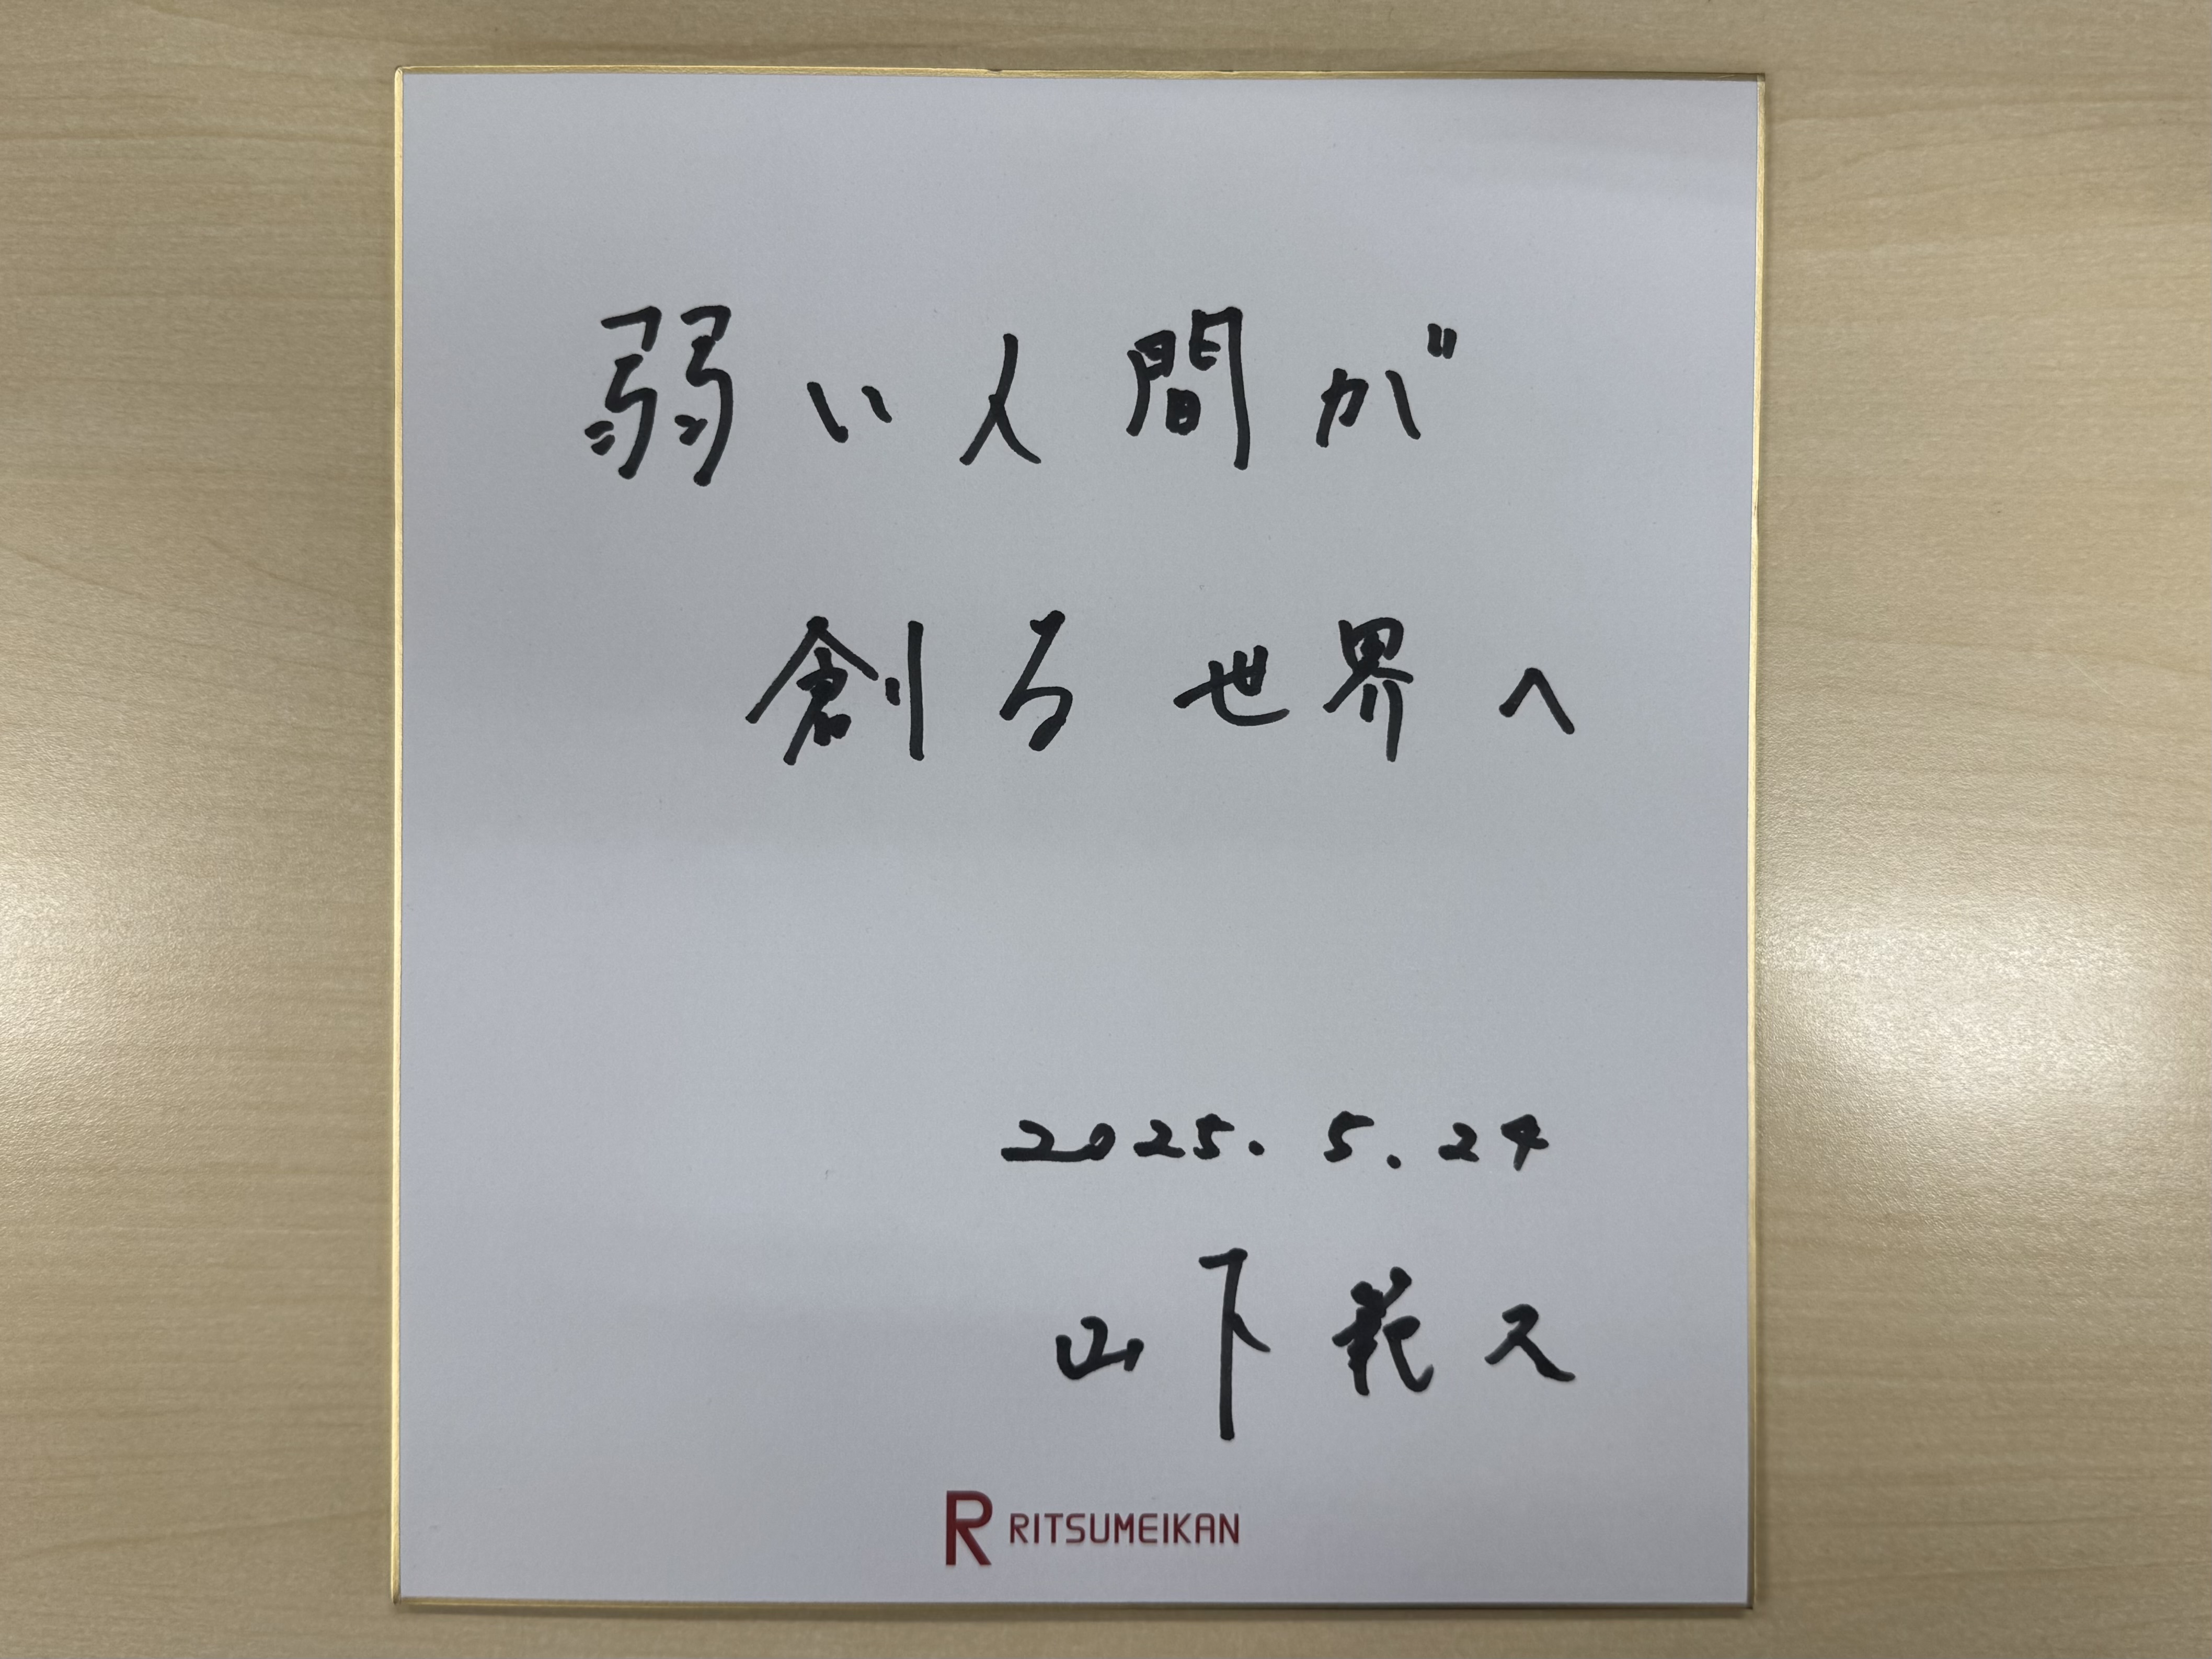 弱い人間が
創る世界へ
2025. 5. 24
山下範久
R RITSUMEIKAN